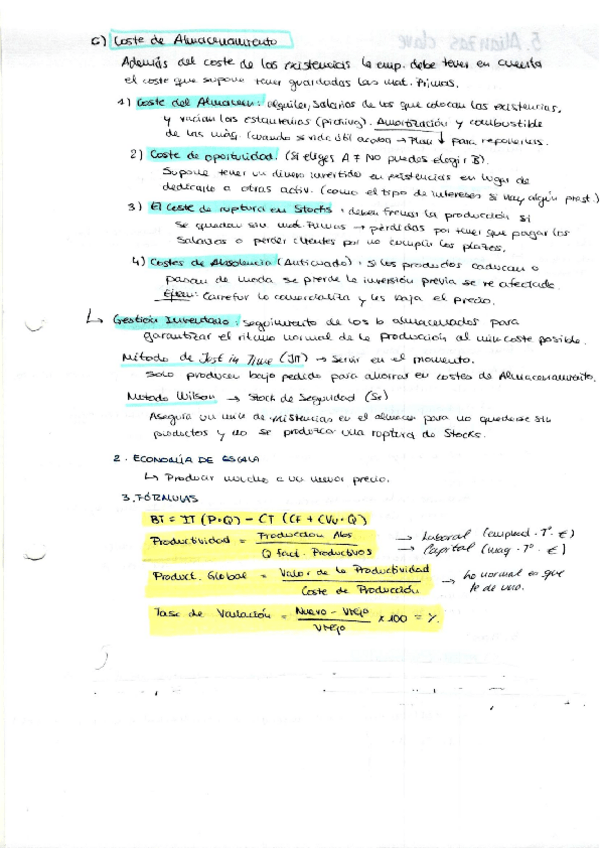 c) Coste de Almacenamiento
Además del coste de las existencias la emp. debe tener en cuenta
el coste que supone tener guardadas las mat. Primas.
1) Coste del Almacen: alquiler, salarios de los que colocan las existencias,
y vacían las estanterías (picking). Amortización y combustible
de las máq. (cuando su vida útil acaba → Plan ↓ para reponerlas.
2) Coste de oportunidad. (Si eliges A ≠ NO puedes elegir B).
Supone tener un dinero invertido en existencias en lugar de
dedicarlo a otras activ. (como el tipo de intereses si hay algún prest.)
3) El coste de ruptura en Stocks: deben frenar la producción si
se quedan sin mat. Primas → pérdidas por tener que pagar los
Salarios o perder clientes por no cumplir los plazos.
4) Costes de Obsolencia (Anticuado): si los productos caducan o
pasan de moda se pierde la inversión previa se ve afectada.
Ejem: Carrefur lo comercializa y les baja el precio.
↳ Gestión Inventario: Seguimiento de los b almacenados para
garantizar el ritmo normal de la producción al min coste posible.
Método de Just in Time (JIT) → Servir en el momento.
Solo producen bajo pedido para ahorrar en costes de Almacenamiento.
Metodo Wilson → Stock de Seguridad (Se)
Asegura un min de existencias en el almacen para no quedarse sin
productos y no se produzca una ruptura de Stocks.
2. ECONOMÍA DE ESCALA
↳ Producir mucho a un menor precio.
3. FÓRMULAS
BT = IT (P·Q) - CT (CF + CVu·Q)
Productividad = Produccion Abs / Q fact. Productivos → Laboral (emplead · Tº · €)
→ Capital (maq · Tº · €)
Product. Global = Valor de la Productividad / Coste de Producción → lo normal es que
te de uno.
Tasa de Variación = Nuevo - Viejo / Viejo x 100 = %